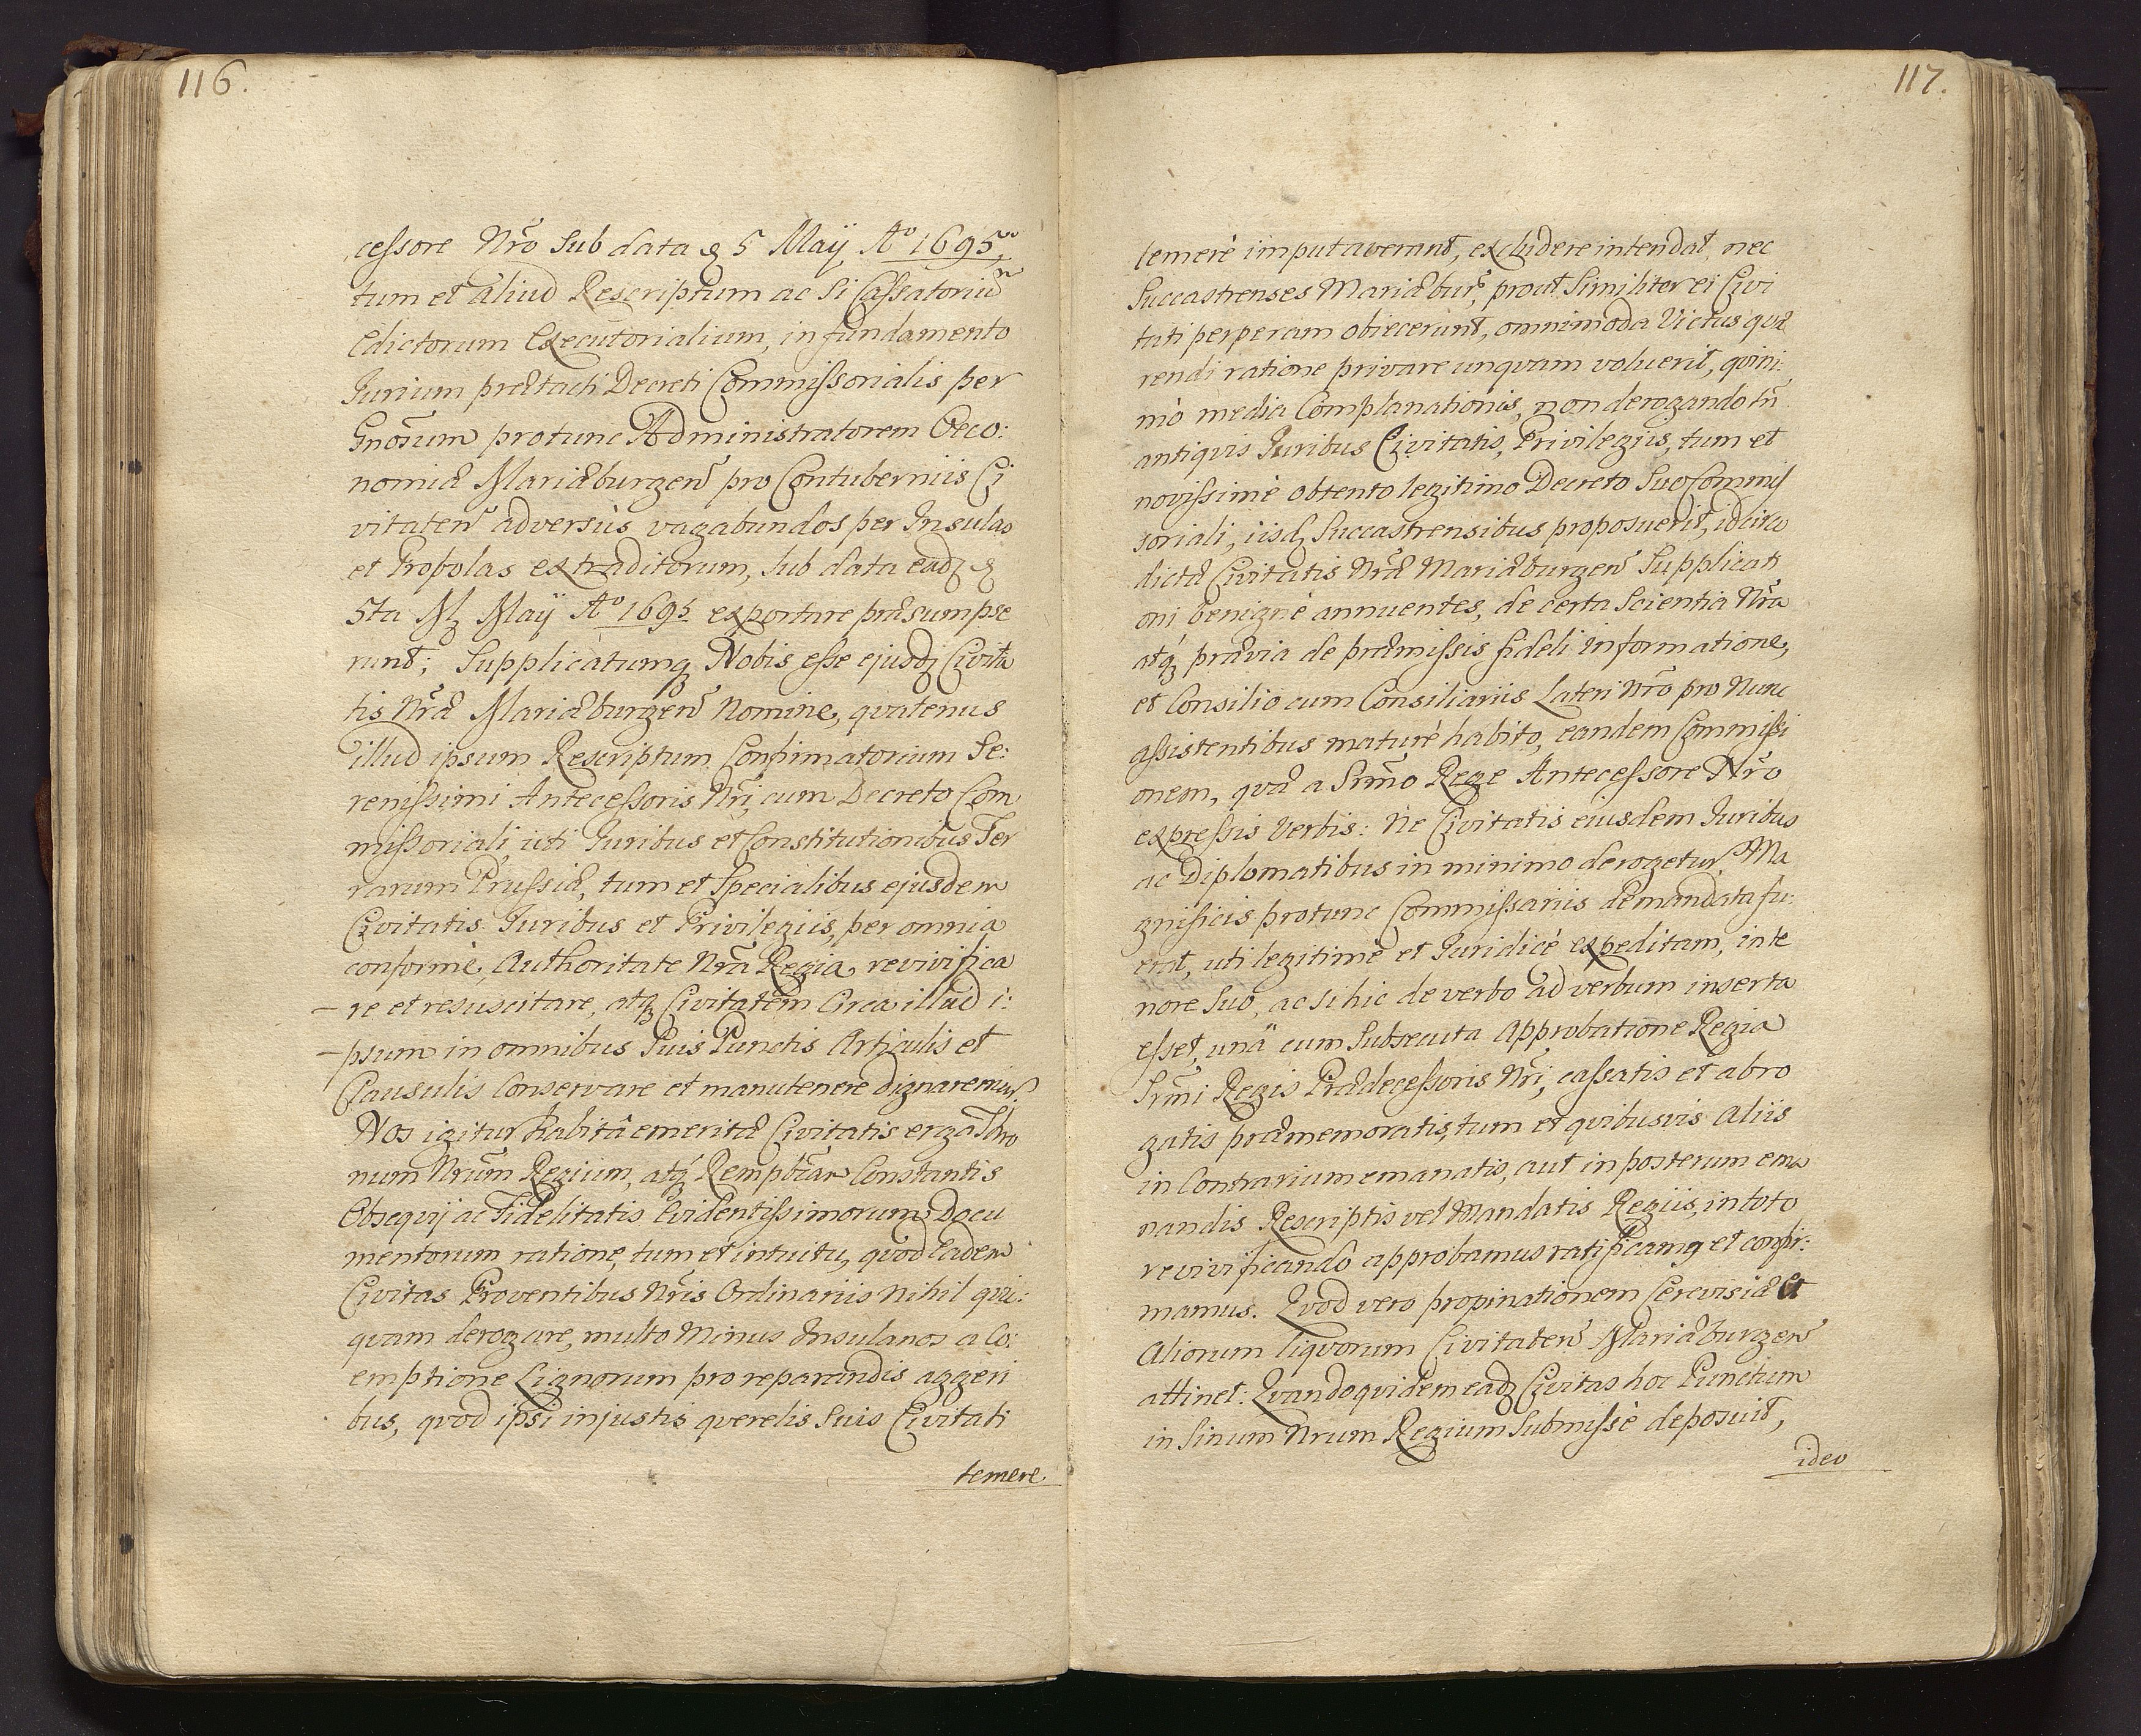 116.
cessore Nr̃o sub data d 5 Maÿ Aº 1695,
tum et aliud Rescriptum ac si Cassatoriũ
Edictorum Executorialium, in fundamento
Jurium prætacti Decreti Commissorialis per
Gnõsum protunc Administratorem Oeco:
nomiæ Mariæburgen̄ pro Contuberniis Ci
vitaten̄ adversùs vagabundos per Insulas
et Propolas extraditorum, sub data eadq́
5ta M Maÿ Aº 1695 exportare præsumpse
runt; Supplicatumq́ Nobis esse ejusdq́ Civita
tis Nr̃æ Mariæburgen̄ Nomine, quatenus
illud ipsum Rescriptum Confirmatorium Se:
renissimi Antecessoris Nr̃i, cum Decreto Com
missoriali uti Juribus et Constitutionibus Ter
rarum Prussiæ, tum et Specialibus ejusdem
Civitatis Juribus et Privilegiis, per omnia
conformè, Authoritate Nr̃a Regia, revivifica
– re et resuscitare, atq́ Civitatem Circa illud i:
– psum in omnibus Suis Punctis Articulis et
Clausulis Conservare et manutenere dignaremur.
Nos igitur habitâ emeritæ Civitatis erga Thro
num Nr̃um Regium, atq́ Rempb̃cam Constantis
Obsequij ac Fidelitatis Evidentissimorum Docu
mentorum ratione, tum et intuitu, quod Eadem
Civitas Proventibus Nr̃is Ordinariis Nihil qui:
quam derogare, multo Minus Insulanos a Co:
emptione Lignorum pro reparandis aggeri
bus, quod ipsi injustis querelis Suis Civitati
temere
117.
temerè imputaverant, excludere intendat, nec
Succastrenses Mariæbur:, prout Similiter ei Civi
tati perperam obiecerunt, omnimoda Victus quæ
rendi ratione privare unquam voluerit, quini:
mò media Complanationis, non derogando tñ
antiquis Juribus Civitatis, Privilegiis, tum et
novissimè obtento legitimo Decreto Suo Commis
soriali, iisdq́ Succastrensibus proposuerit, idcirco
dictæ Civitatis Nr̃æ Mariæburgen̄ Supplicati
oni benignè annuentes, de certa Scientia Nr̃a
atq́ prævia de præmissis fideli informatione,
et Consilio cum Consiliariis Lateri Nr̃o pro Nunc
assistentibus maturè habito, eandem Commissi
onem, quæ a Srm̃o Rege Antecessore Nr̃o
expressis verbis: Ne Civitatis eiusdem Juribus
ac Diplomatibus in minimo derogetur, Ma
gnificis protunc Commissariis demandata fu:
erat, uti legitimè et Juridicè expeditam, in te
nore Suo, ac si hic de verbo ad verbum inserta
esset, unà cum Subsecuta Approbatione Regia
Srm̃i Regis Prædecessoris Nr̃i, cassatis et abro
gatis præmemoratis, tum et quibusvis aliis
in Contrarium emanatis, aut in posterum ema
nandis Rescriptis vel Mandatis Regiis, in toto
revivificando approbamus ratificamq́ et confir:
mamus. Quod vero propinationem Cerevisiæ et
Aliorum liquorum Civitaten̄ Mariæburgen̄
attinet: Quandoquidem eadq́ Civitas hoc Punctum
in Sinum Nrum Regium Submissè deposuit,
ideo